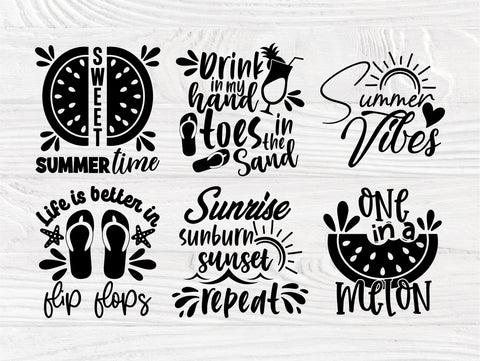 SWEET
SUMMER time
Drink
in my
hand
toes in
the
Sand
Summer
Vibes
Life is better in
flip flops
Sunrise
sunburn
sunset
repeat
one
in a
MELON